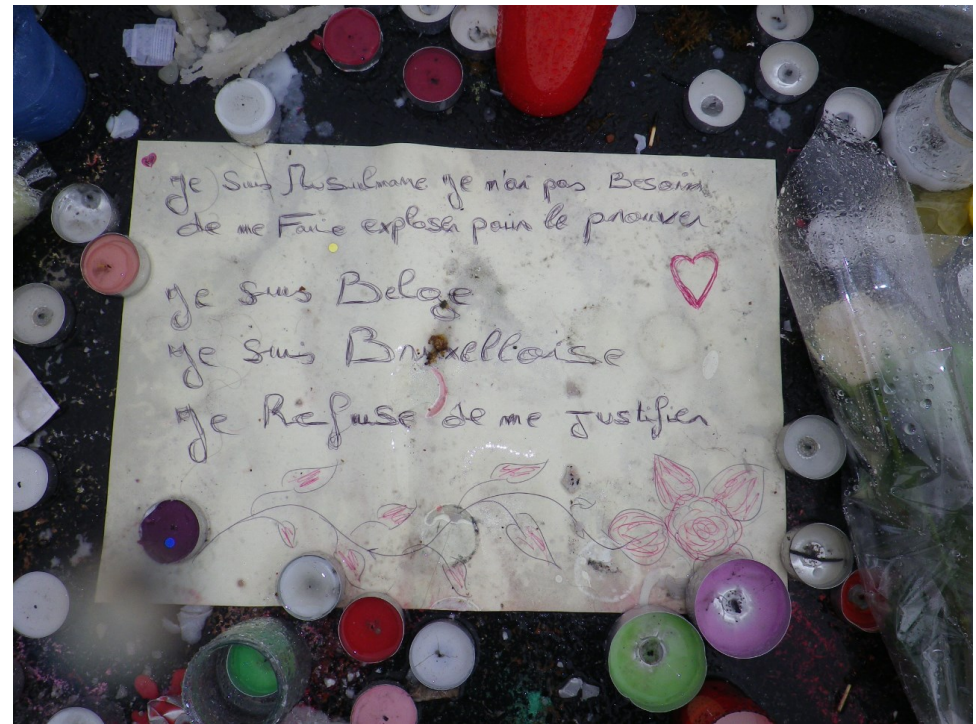 Je Suis Musulmane Je n'ai pas Besoin
de me Faire exploser pour le prouver
Je suis Belge
Je suis Bruxelloise
Je Refuse de me justifier